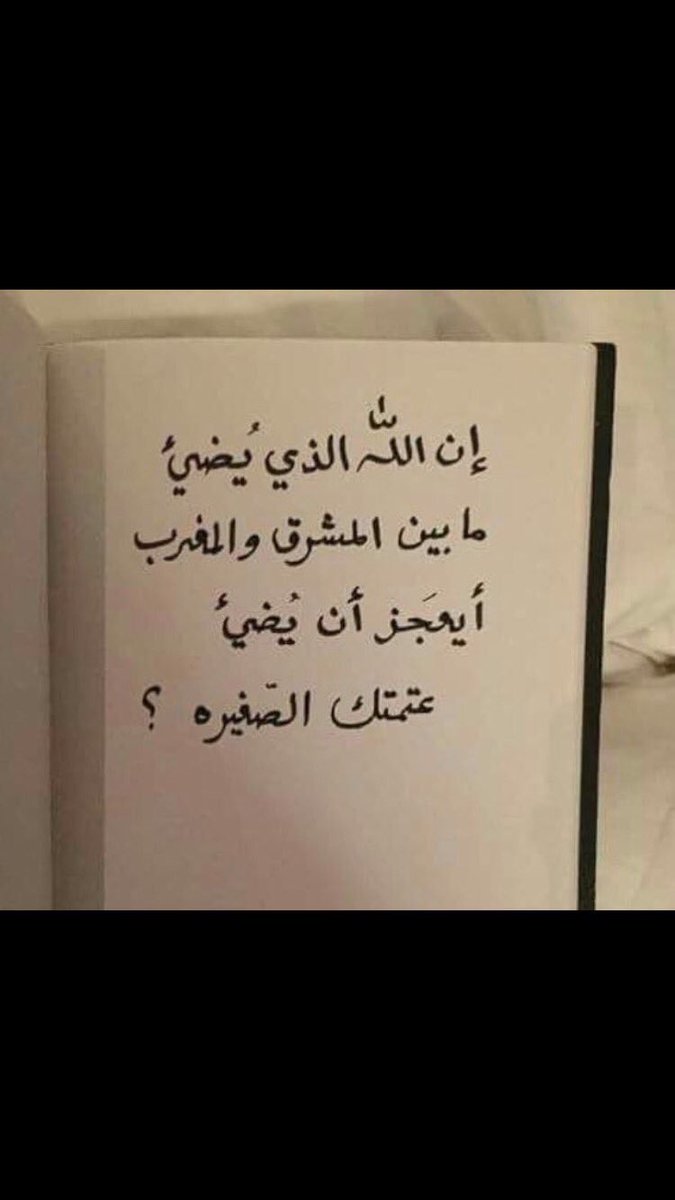 إن اللّٰه الذي يُضئ
ما بين المشرق والمغرب
أيعجَز أن يُضئ
عتمتك الصّغيره ؟